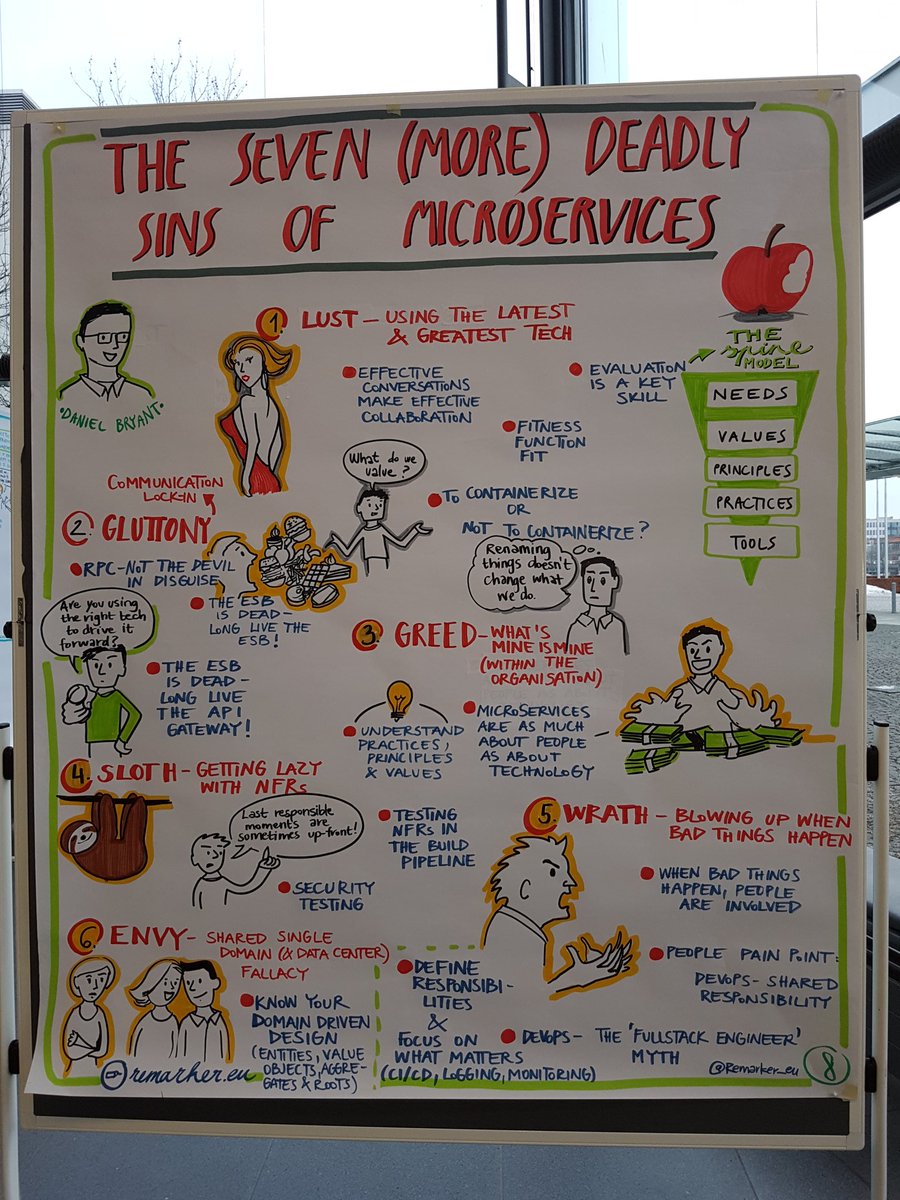 THE SEVEN (MORE) DEADLY
SINS OF MICROSERVICES
DANIEL BRYANT
1. LUST – USING THE LATEST
& GREATEST TECH
EFFECTIVE
CONVERSATIONS
MAKE EFFECTIVE
COLLABORATION
EVALUATION
IS A KEY
SKILL
FITNESS
FUNCTION
FIT
THE
spine
MODEL
NEEDS
VALUES
PRINCIPLES
PRACTICES
TOOLS
What do we
value?
TO CONTAINERIZE
OR
NOT TO CONTAINERIZE?
Renaming
things doesn't
change what
we do.
COMMUNICATION
LOCK-IN
2. GLUTTONY
RPC-NOT THE DEVIL
IN DISGUISE
THE ESB
IS DEAD–
LONG LIVE THE
ESB!
Are you using
the right tech
to drive it
forward?
THE ESB
IS DEAD–
LONG LIVE
THE API
GATEWAY!
3. GREED – WHAT'S
MINE IS MINE
(WITHIN THE
ORGANISATION)
UNDERSTAND
PRACTICES,
PRINCIPLES
& VALUES
MICROSERVICES
ARE AS MUCH
ABOUT PEOPLE
AS ABOUT
TECHNOLOGY
4. SLOTH – GETTING LAZY
WITH NFRs
Last responsible
moments are
sometimes up-front!
SECURITY
TESTING
TESTING
NFRS IN
THE BUILD
PIPELINE
5. WRATH – BLOWING UP WHEN
BAD THINGS HAPPEN
WHEN BAD THINGS
HAPPEN, PEOPLE
ARE INVOLVED
PEOPLE PAIN POINT:
DEVOPS – SHARED
RESPONSIBILITY
DEVOPS – THE 'FULLSTACK ENGINEER'
MYTH
DEFINE
RESPONSIBI-
LITIES
&
FOCUS ON
WHAT MATTERS
(CI/CD, LOGGING, MONITORING)
6. ENVY – SHARED SINGLE
DOMAIN (& DATA CENTER)
FALLACY
KNOW YOUR
DOMAIN DRIVEN
DESIGN
(ENTITIES, VALUE
OBJECTS, AGGRE-
GATES & ROOTS)
remarker.eu
@Remarker_eu
8